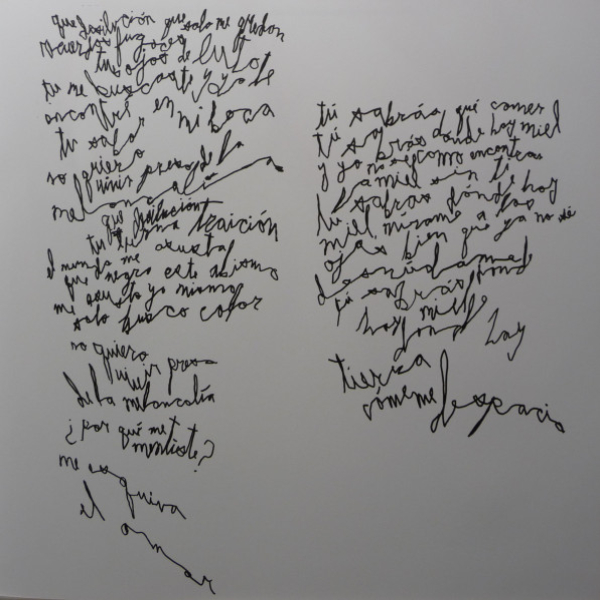 que desilución que solo me quedan
recuerdos fugaces
tus ojos de luto
tu me buscaste y yo te
encontré en mi boca
tu sabor
no quiero
vivir preso de la
melancolía
que desilución
tu fu una traición
el mundo me asusta
que negro este abismo
me asusto yo mismo
solo busco calor
no quiero
vivir preso
de la melancolía
¿por qué me
mentiste?
me esquiva
el amor
tú sabrás qué comer
tú sabrás donde hay miel
y yo no se como encontrar
la miel sin ti
tu sabras dónde hay
miel mírame a los
ojos bien que ya no sé
desnúdame
tú sabrás
hay miel
donde hay
tierra
cómeme despacio